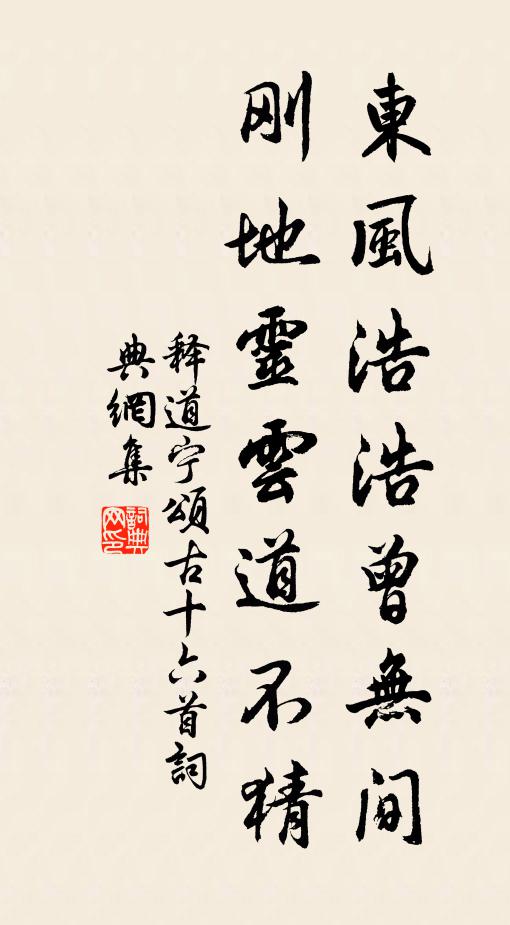 東風浩浩曾無间
刚地靈雲道不猜
释道宁頌古十六首詞
典網集
詞典网印